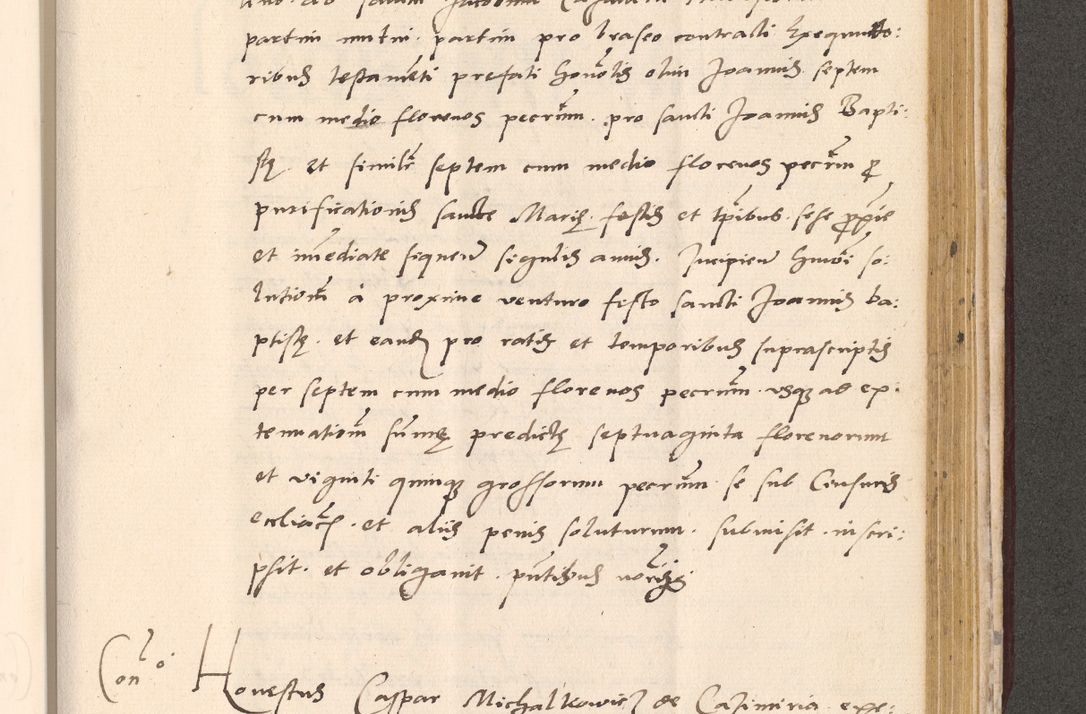 partim mutui . partim pro braseo contracti Exequuto:
ribus testameti prefati honolis olim Joannis septem
cum medio florenos pecrum . pro sancti Joannis Bapti:
stę . et similr septem cum medio florenos pecrum p
purificationis sancte Marię . festis et tpibus . sese
et imediate sequen singulis annis . Incipien hmoi so:
lutiom à proxime venturo festo sancti Joannis ba:
ptistę . et eand pro ratis et temporibus suprascriptis
per septem cum medio florenos pecrum . usq ad ex:
tenuatiom sumę predictę septuaginta florenorum
et viginti quinq grossorum pecrum se sub Censuris
eccliacis . et aliis penis soluturum . submisit . inscri:
psit . et obligavit . pntibus
Con lo Honestus Caspar Michalkowicz de Casimiria exe: